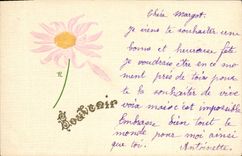 Souvenir
Chère Margot.
Je viens te souhaiter une
bonne et heureuse fête.
je voudrais être en ce mo
ment près de toi pour
te le souhaiter de vive
voix mais c'est impossible
Embrasse bien tout le
monde pour moi ainsi
que toi. Antoinette